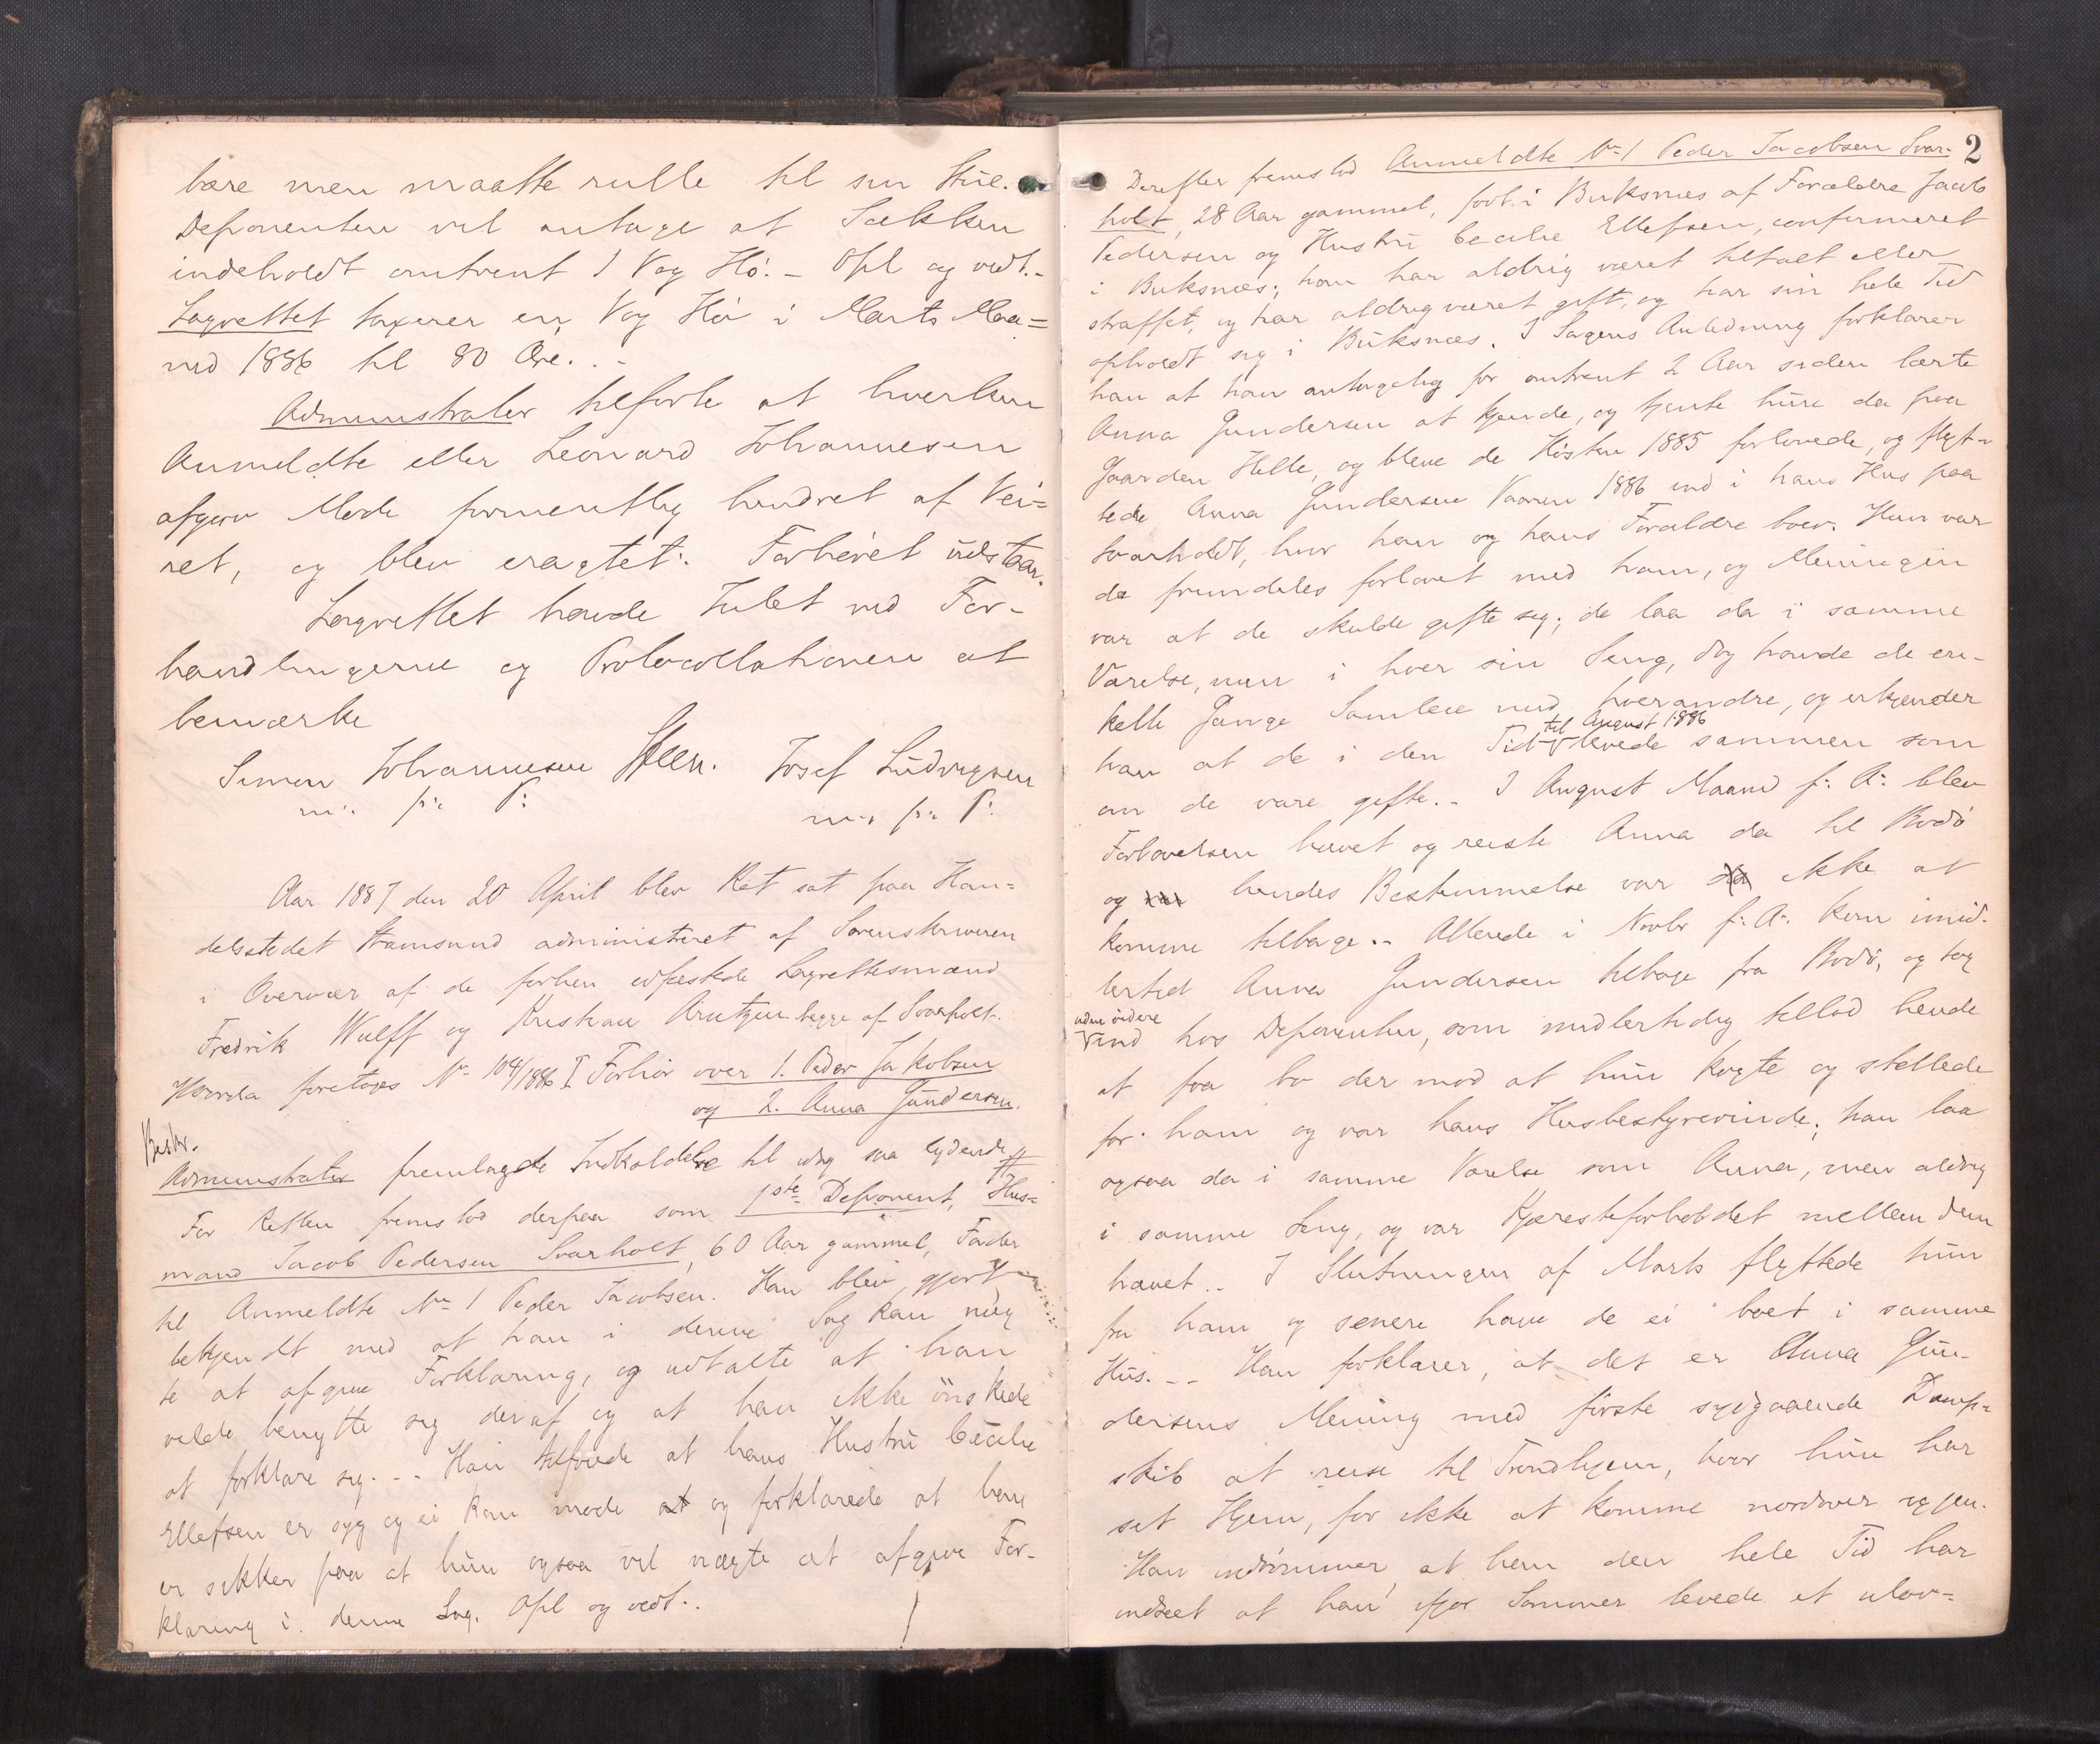 bære men maatte rulle til sin Stue.
Deponenten vil antage at Sækken
indeholdt omtrent 1 Vog Hö. - Opl og vedt. -
Lagrettet taxerer en Vog Hö i Marts Maa=
ned 1886 til 80 Øre. . -
Administrator tilførte at hverken
Anmeldte eller Leonard Johannesen
afgav Møde formentlig hindret af Vei=
ret, og blev eragtet: Forhöret udstaar.
Lagrettet havde Intet ved For-
handlingerne og Protocollationen at
bemærke
Simon Johannesen Steen. Josef Ludvigsen
m: p: P: m: p: P:
Aar 1887 den 20 April blev Ret sat paa Han=
delsstedet Stamsund administreret af Sorenskriveren
i Overvær af de forhen edfæstede Lagrettesmænd
Fredrik Wulff og Kristian Arntzen begge af Svarholt.
Hvorda foretoges No 104/1886 I Forhör over 1. Peder Jakobsen
og 2. Anna Gundersen.
Beskr.
Administrator fremlagde Indkaldelse til idag saa lydende #
For Retten fremstod derpaa som 1ste Deponent, Hus=
mand Jacob Pedersen Svarholt, 60 Aar gammel, Fader
til Anmeldte No 1 Peder Jacobsen. Han blev gjort
bekjendt med at han i denne Sag kan næg
te at afgive Forklaring, og udtalte at han
vilde benytte sig deraf og at han ikke önskede
at forklare sig. - - Han tilføiede at hans Hustru Cecilie
Ellefsen er syg og ei kan møde at og forklarede at han
er sikker paa at hun ogsaa vil nægte at afgive For-
klaring i denne Sag. Opl og vedt. .
2
Derefter fremstod Anmeldte No 1 Peder Jacobsen Svar-
holt, 28 Aar gammel, født i Buksnæs af Forældre Jacob
Pedersen og Hustru Cecilie Ellefsen, confirmeret
i Buksnæs; han har aldrig været tiltalt eller
straffet, og har aldrig været gift, og har sin hele Tid
opholdt sig i Buksnæs. I Sagens Anledning forklarer
han at han antagelig for omtrent 2 Aar siden lærte
Anna Gundersen at kjende, og tjente hun da paa
Gaarden Helle, og bleve de Hösten 1885 forlovede, og flyt-
tede Anna Gundersen Vaaren 1886 ind i hans Hus paa
Svarholt, hvor han og hans Forældre boer. Hun var
da fremdeles forlovet med ham, og Meningen
var at de skulde gifte sig; de laa da i samme
Værelse, men i hver sin Seng, dog havde de en-
kelte Gange Samleie med hverandre, og erkjender
til August 1886
han at de i den Tid levede sammen som
om de vare gifte. - I August Maaned f: A: blev
Forlovelsen hævet og reiste Anna da til Bodö
og hendes Bestemmelse var ikke at
komme tilbage. - Allerede i Novbr f: A: kom imid-
lertid Anna Gundersen tilbage fra Bodö, og tog
uden videre
ind hos Deponenten, som midlertidig tillod hende
at faa bo der mod at hun kogte og stellede
for ham og var hans Husbestyrerinde; han laa
ogsaa da i samme Værelse som Anna, men aldrig
i samme Seng, og var Kjæresteforholdet mellem dem
hævet. - I Slutningen af Marts flyttede hun
fra ham og senere have de ei boet i samme
Hus. - - Han forklarer, at det er Anna Gun-
dersens Mening med første sydgaaende Damp=
skib at reise til Trondhjem, hvor hun har
sit Hjem, for ikke at komme nordover igjen.
Han indrömmer at han den hele Tid har
indseet at han ifjor Sommer levede et ulov=